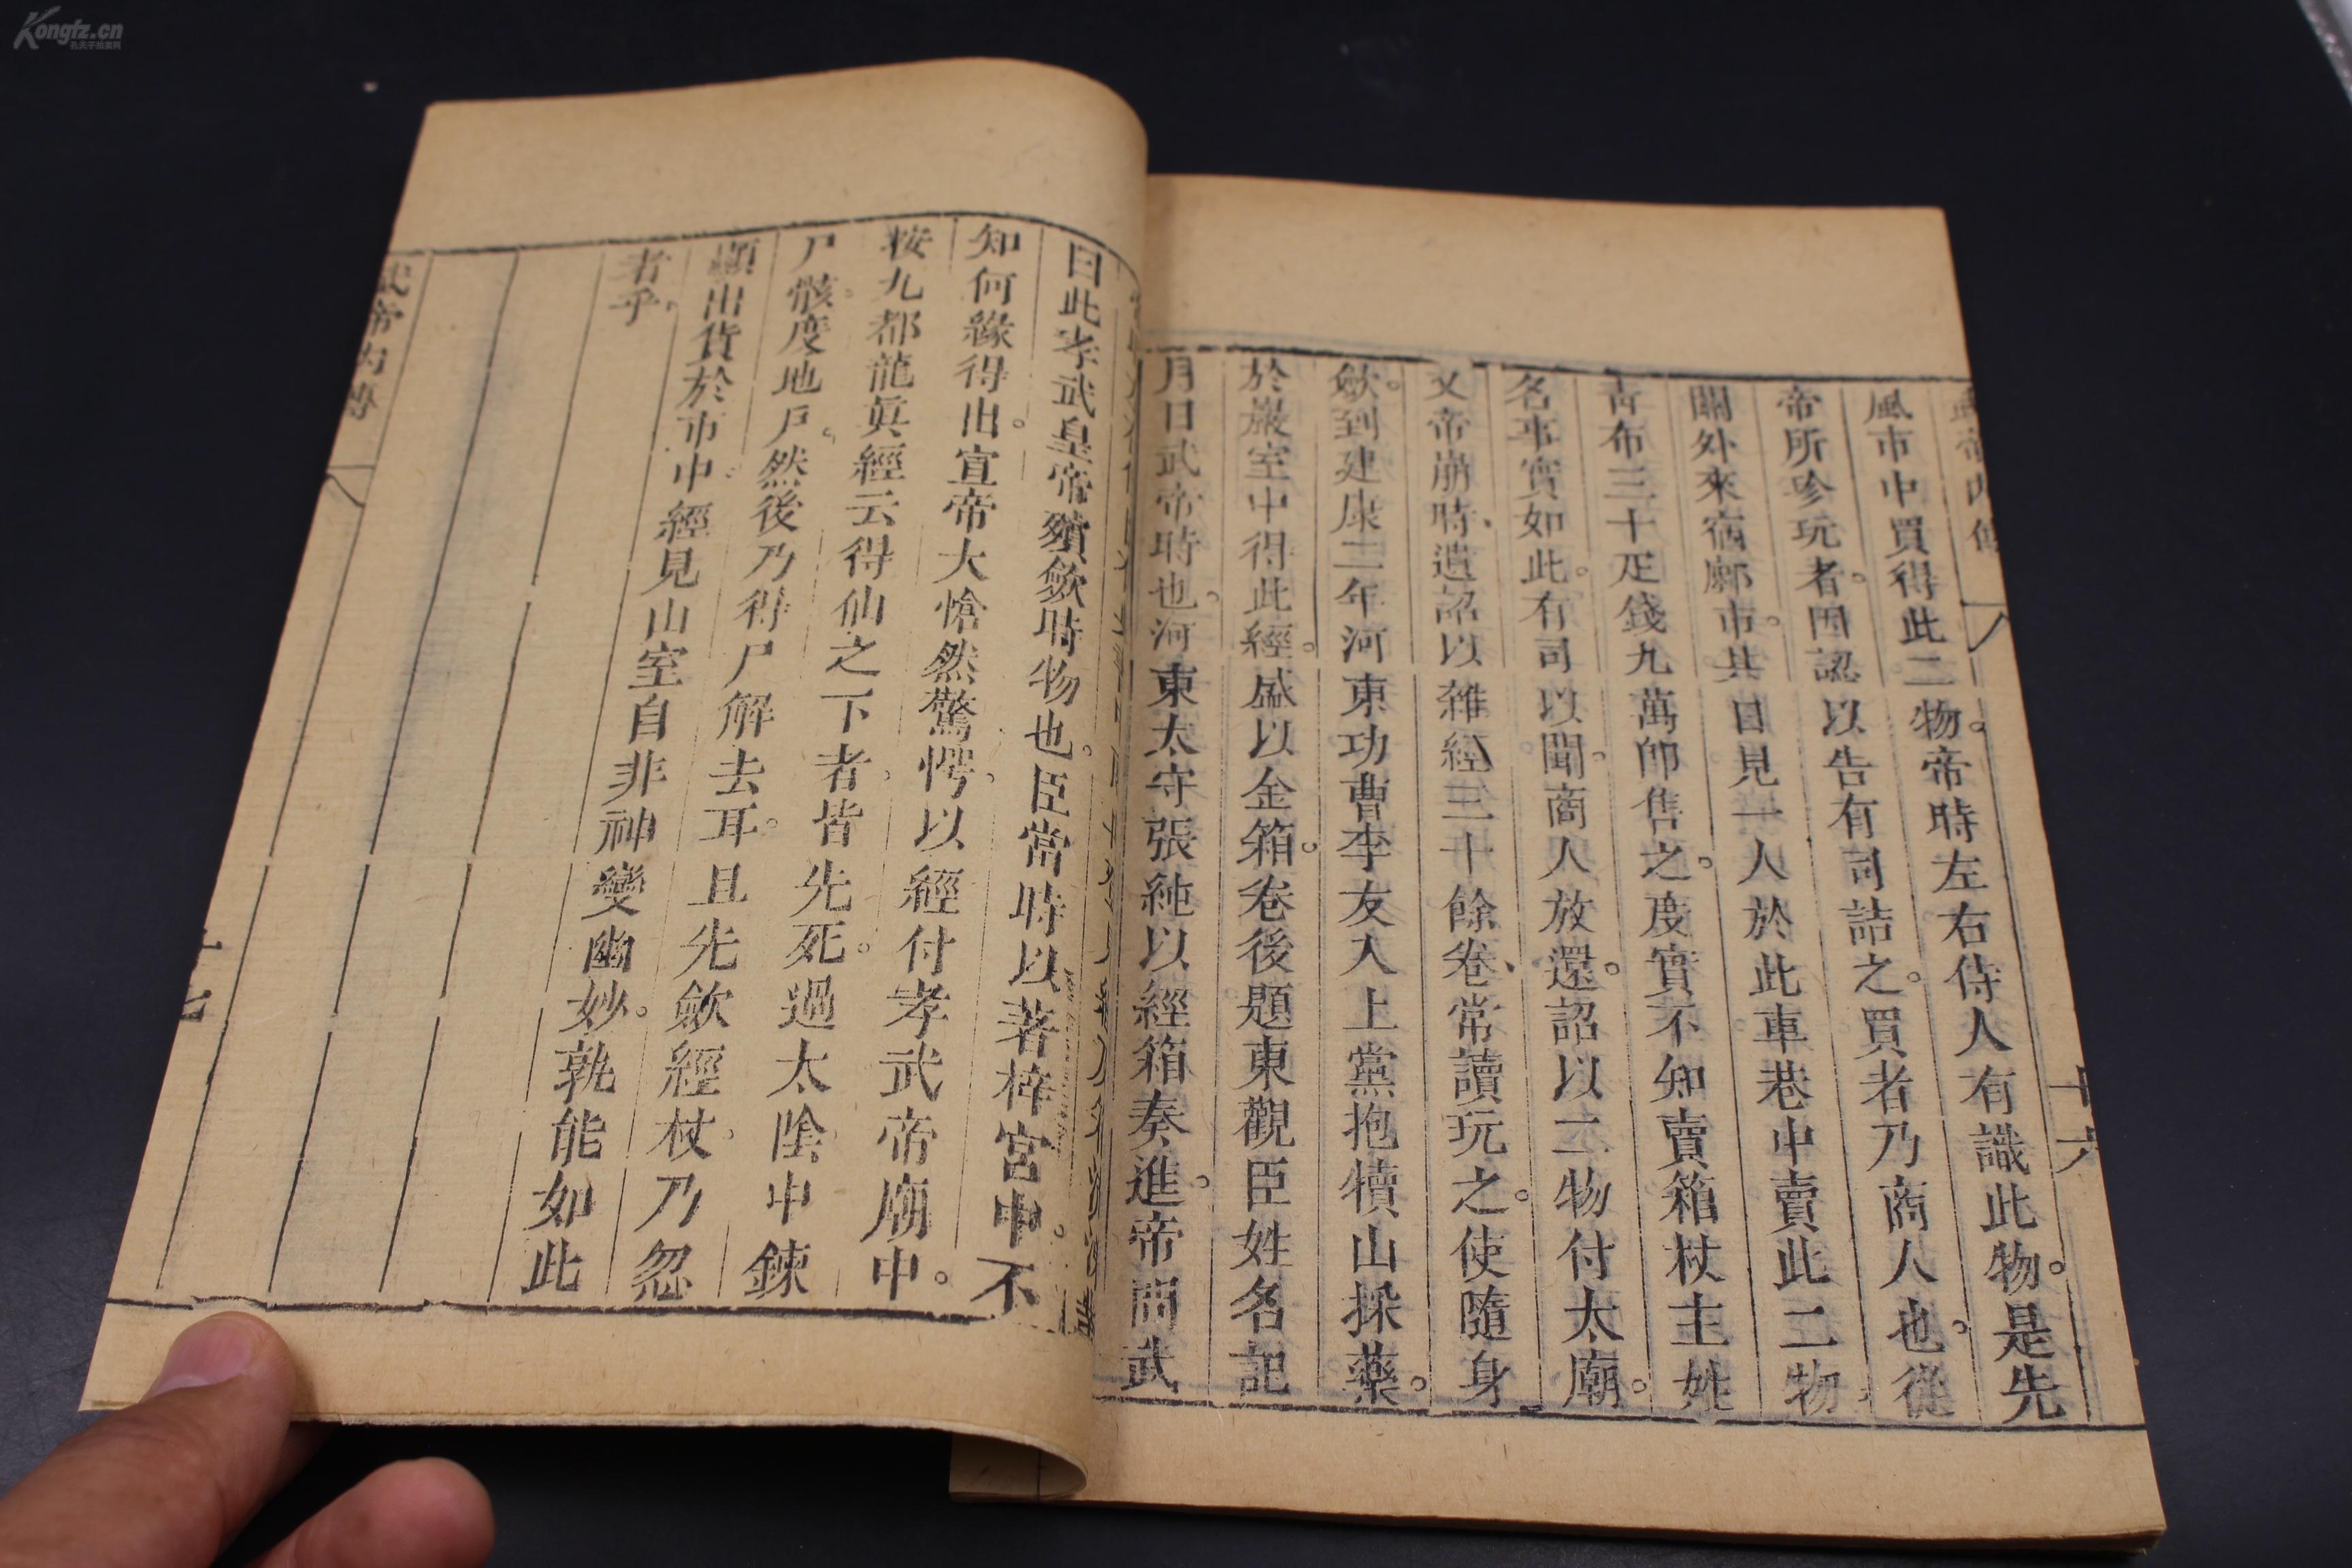 Kongfz.cn
武帝內傳
十六
風市中買得此二物。帝時左右侍人有識此物。是先
帝所珍玩者。因認以告有司詰之。買者乃商人也。從
關外來宿鄽市。其日見一人於此車巷中賣此二物
青布三十疋錢九萬卽售之。度實不知賣箱杖主姓
名事實如此。有司以聞。商人放還。詔以二物付太廟。
又帝崩時、遺詔以雜經三十餘卷、常讀玩之。使隨身
斂。到建康二年河東功曹李友入上黨抱犢山採藥。
於巖室中得此經。盛以金箱。卷後題東觀臣姓名記
月日武帝時也。河東太守張純以經箱奏進。帝問武
曰此孝武皇帝殯斂時物也。臣當時以著梓宮中。不
知何緣得出。宣帝大愴然驚愕。以經付孝武帝廟中。
按九都龍眞經云得仙之下者。皆先死。過太陰中鍊
尸骸。度地戶。然後乃得尸解去耳。且先斂經杖。乃忽
顯出貨於市中。經見山室自非神變幽妙。孰能如此
者乎。
武帝內傳
十七